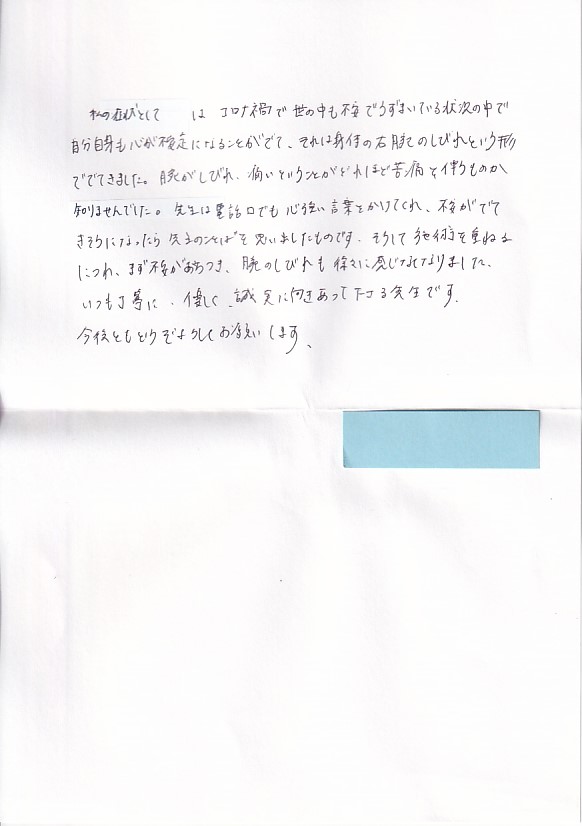 私の症状として は コロナ禍で世の中も不安でうずまいている状況の中で
自分自身も心が不安定になることがでて、それは身体の右腕のしびれという形
ででてきました。腕がしびれ、痛いということがどれほど苦痛を伴うものか
知りませんでした。先生は電話口でも心強い言葉をかけてくれ、不安がでて
きそうになったら先生のことばを思いましたものです。そして施術を重ねる
につれ、まず不安がおちつき、腕のしびれも徐々に感じなくなりました。
いつも丁寧に、優しく、誠実に向きあって下さる先生です。
今後ともどうぞよろしくお願いします。